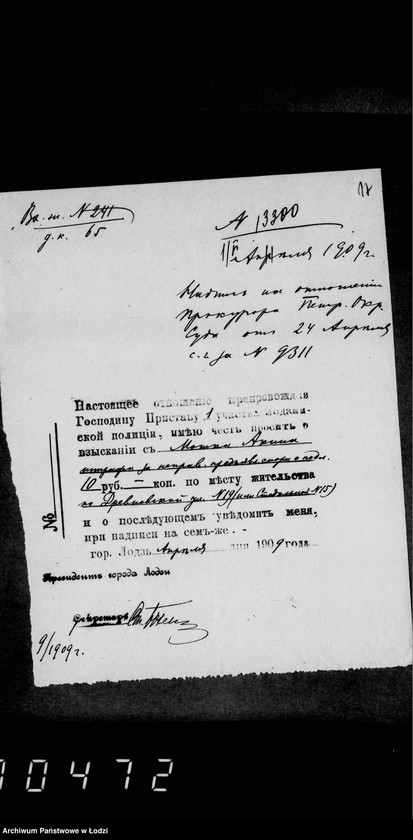 17
Вх. ж. N 241
д. к. 65
N 13300
Апреля 1909 г.
Надпись на отношении
Прокурора Петр. Окр.
Суда от 24 Апреля
с. г. за N 9311
Настоящее отношение препровождая
Господину Приставу 1 участка Лодзин-
ской полиции, имею честь просить о
взыскании с Мошка
штрафа за неправ.
10 руб. — коп. по месту жительства
по Древновской ул. N 19 (или N 15)
и о последующем уведомить меня,
при надписи на сем-же. -
гор. Лодзь Апреля дня 1909 года
№
Президент города Лодзи
Секретарь
9/1909 г.
10472
Archiwum Państwowe w Łodzi